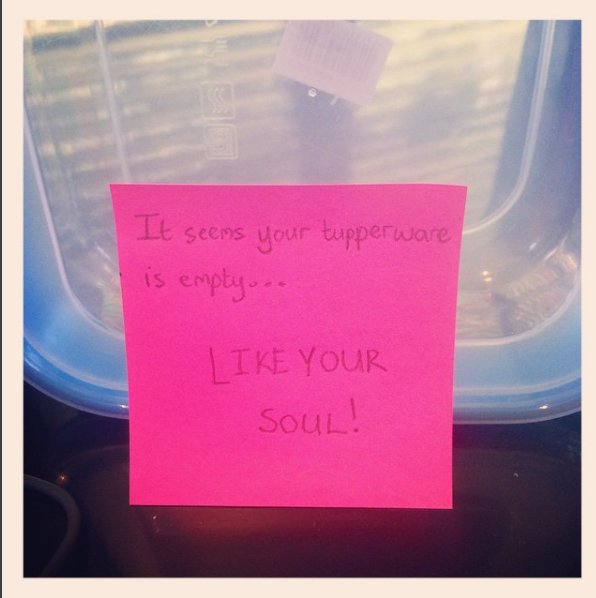 It seems your tupperware
is empty...
LIKE YOUR
SOUL!